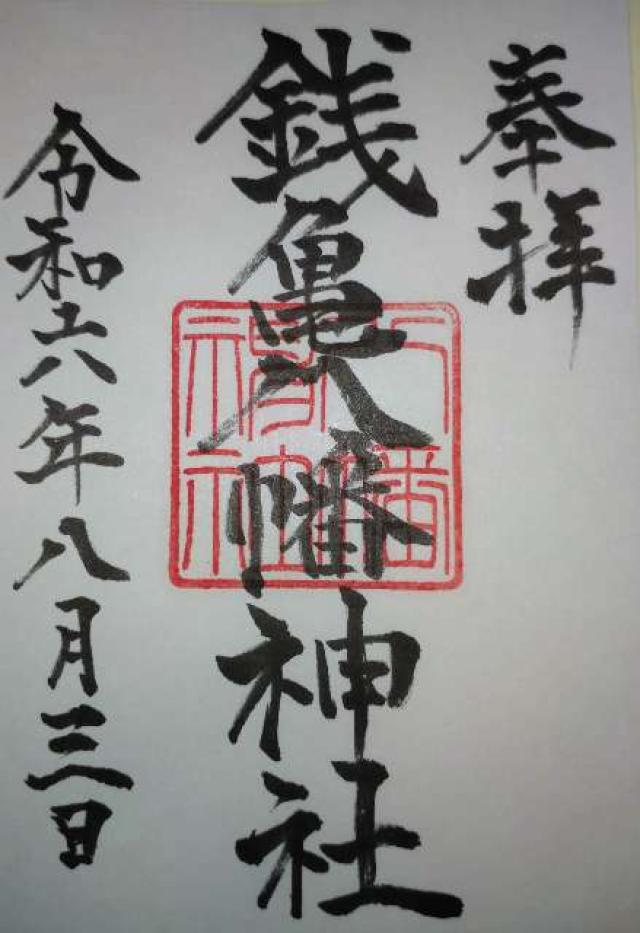 奉拝
銭亀八幡神社
令和六年八月三日